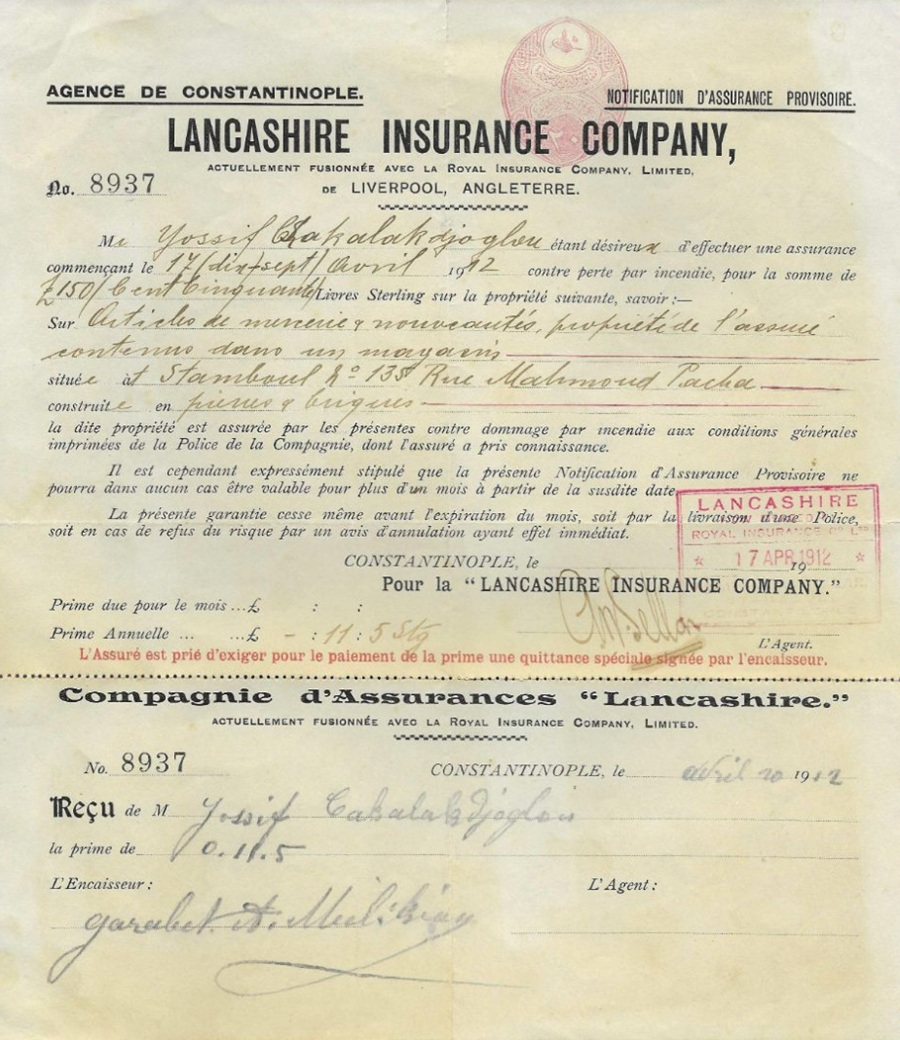 AGENCE DE CONSTANTINOPLE.
NOTIFICATION D'ASSURANCE PROVISOIRE.
LANCASHIRE INSURANCE COMPANY,
ACTUELLEMENT FUSIONNÉE AVEC LA ROYAL INSURANCE COMPANY, LIMITED,
No. 8937
DE LIVERPOOL, ANGLETERRE.
Mr Yossif Cakalakdjoglou étant désireux d'effectuer une assurance
commençant le 17 (dix-sept) Avril 1912 contre perte par incendie, pour la somme de
£150/Cent Cinquante/Livres Sterling sur la propriété suivante, savoir:—
Sur Articles de mercerie & nouveautés, propriété de l'assuré
contenus dans un magasin
située à Stamboul No 135 Rue Mahmoud Pacha
construite en pierres & briques
la dite propriété est assurée par les présentes contre dommage par incendie aux conditions générales
imprimées de la Police de la Compagnie, dont l'assuré a pris connaissance.
Il est cependant expressément stipulé que la présente Notification d'Assurance Provisoire ne
pourra dans aucun cas être valable pour plus d'un mois à partir de la susdite date.
La présente garantie cesse même avant l'expiration du mois, soit par la livraison d'une Police,
soit en cas de refus du risque par un avis d'annulation ayant effet immédiat.
LANCASHIRE
ROYAL INSURANCE Co Ld
17 APR 1912
CONSTANTINOPLE, le 19
Pour la "LANCASHIRE INSURANCE COMPANY."
Prime due pour le mois ...£ : :
Prime Annuelle ... ...£ - : 11 : 5 Stg
L'Agent.
L'Assuré est prié d'exiger pour le paiement de la prime une quittance spéciale signée par l'encaisseur.
Compagnie d'Assurances "Lancashire."
ACTUELLEMENT FUSIONNÉE AVEC LA ROYAL INSURANCE COMPANY, LIMITED.
No. 8937
CONSTANTINOPLE, le Avril 20 1912
Reçu de M Yossif Cakalakdjoglou
la prime de 0.11.5
L'Encaisseur:
L'Agent:
Garabet A.